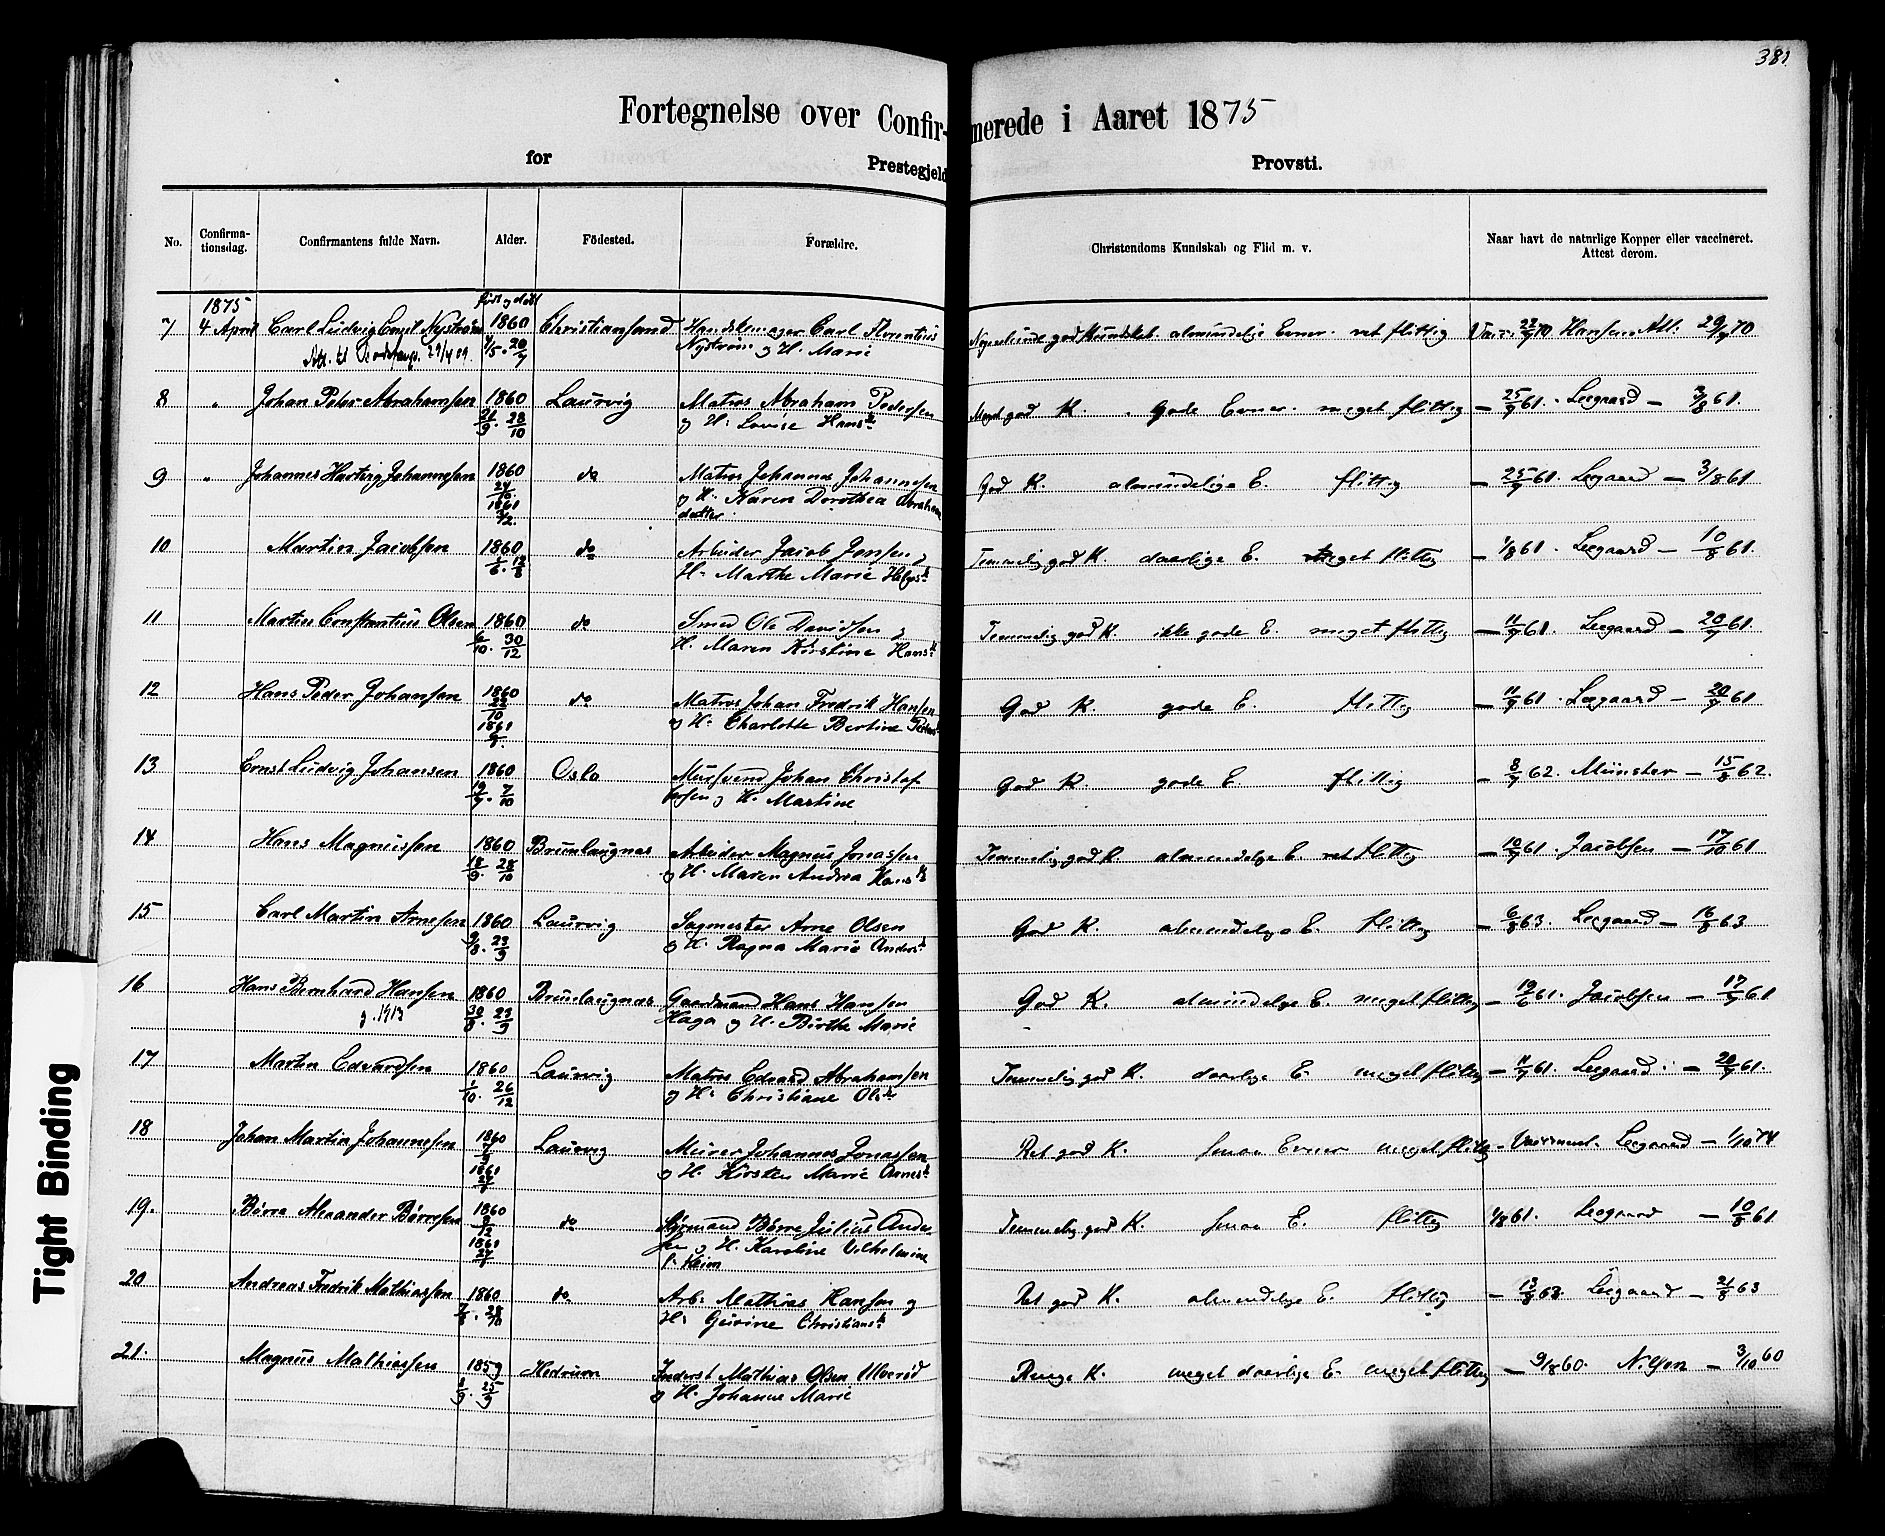 381
Fortegnelse over Confirmerede i Aaret 1875
for Prestegjeld Provsti.
No. Confirmationsdag. Confirmantens fulde Navn. Alder. Födested. Forældre. Christendoms Kundskab og Flid m. v. Naar havt de naturlige Kopper eller vaccineret. Attest derom.
1875 født og døbt
7 4 April Carl Ludvig Emil Nystrøm 1860 Christiansand Handskemager Carl Florentius god Kundskab almindelige Evner. ret flittig Hansen Att. 29/9 70
29/4 09. 1/5. 20/7 Nystrøm og H. Marie
8 " Johan Peter Abrahamsen 1860 Laurvig Matros Abraham Pedersen Meget god K. Gode Evner. meget flittig – 25/7 61. Leegaard – 3/8 61.
21/9. 28/10 og H. Lovise Hansdr
9 " Johannes Hartvig Johannesen 1860 do Matros Johannes Johannesen God K. almindelige E. flittig – 25/7 61. Leegaard – 3/8 61
24/10 1861 3/2. og H. Karen Dorothea Abrahams
datter
10 Martin Jacobsen 1860 do Arbeider Jacob Jensen og Temmelig god K. daarlige E. meget flittig – 1/8 61. Leegaard – 10/8 61.
1/6. 12/8 H. Marthe Marie Helgesdr
11 Martin Constantius Olsen 1860 do Smed Ole Davidsen og Temmelig god K. ikke gode E. meget flittig – 11/7 61. Leegaard – 20/7 61.
6/10. 30/12 H. Maren Kirstine Hansdr
12 Hans Peder Johansen 1860 do Matros Johan Fredrik Hansen God K. gode E. flittig – 11/7 61. Leegaard – 20/7 61
22/10 1861 og H. Charlotte Bertine
13 Ernst Ludvig Johansen 1860 Oslo Muursvend Johan Christof God K. gode E. flittig – 8/7 62. Münster – 15/8 62.
19/7. 7/10 fersen og H. Martine
14 Hans Magnussen 1860 Brunlaugnæs Arbeider Magnus Jonassen Temmelig god K. almindelige E. ret flittig – 10/7 61. Jacobsen – 17/10 61
18/9. 28/10 og H. Maren Andrea Hansdr
15 Carl Martin Arnesen 1860 Laurvig Sagmester Arne Olsen God K. almindelige E. flittig – 6/8 63. Leegaard – 16/8 63
9/8. 23/9 og H. Ragna Marie Andersdr
16 Hans Bernhard Hansen 1860 Brunlaugnæs Gaardmand Hans Hansen God K. almindelige E. meget flittig – 19/6 61. Jacobsen – 17/7 61
g. 1913 30/8. 23/9 Haga og H. Birthe Marie
17 Martin Edvardsen 1860 Laurvig Matros Edvard Abrahamsen Temmelig god K. daarlige E. meget flittig – 11/7 61. Leegaard – 20/7 61.
1/10. 26/12 og H. Christiane Olsdr
18 Johan Martin Johannesen 1860 Laurvig Murer Johannes Jonassen Ret god K. smaa Evner meget flittig – Leegaard – 1/10 74
7/9 1861 og H. Kirsten Marie
19. Børre Alexander Børresen 1860 do Styrmand Børre Julius Ander- Temmelig god K. smaa E. flittig 1/8 61. Leegaard – 10/8 61
1861 sen og H. Karoline Vilhelmine
f. Heim
20 Andreas Fredrik Mathiassen 1860 do. Arb. Mathias Hansen og Ret god K. almindelige E. flittig – 13/8 63. Leegaard – 21/8 63
28/10 H. Gurine Christiansdr
21. Magnus Mathiassen 1859 Hedrum Inderst Mathias Olsen Ulverød Ringe K. meget daarlige E. meget flittig – 9/8 60. Nilsen – 3/10 60
25/9 og H. Johanne Marie
Tight Binding